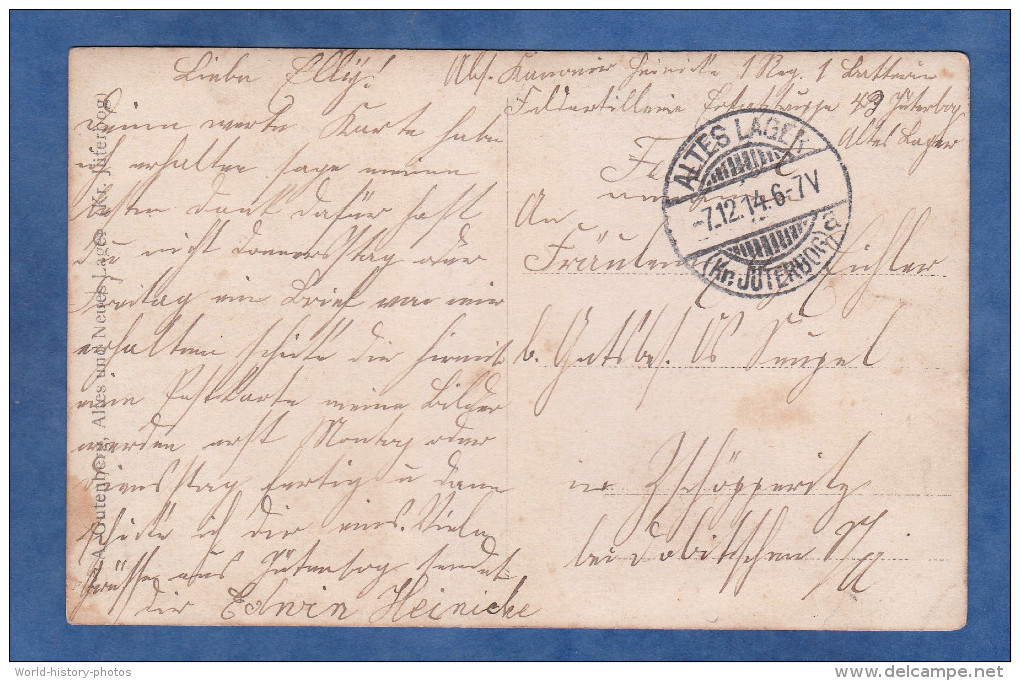 Liebe Elly!
Deine werte Karte habe
ich erhalten sage meinen
besten Dank dafür hast
du nicht Donnerstag oder
Freitag ein Brief von mir
erhalten schicke dir hiermit
eine Postkarte meine Bilder
werden erst Montag oder
Dienstag fertig u dann
schicke ich dir eins. Viele
Grüsse aus Jüterbog sendet
dir Edwin Heinicke
Abs. Kanonier Heinicke 1 Reg. 1 Batterie
Feldartillerie 43 Jüterbog
Altes Lager
ALTES LAGER
-7.12.14.6-7V
(Kr. JÜTERBOG) a
An
Fräulein Eichler
b. Gutsbes.
in Zschöpperitz
bei Dobitschen S/A
A. Gutenberg, Altes und Neues Lager (Kr. Jüterbog)
World-history-photos
delcampe.net